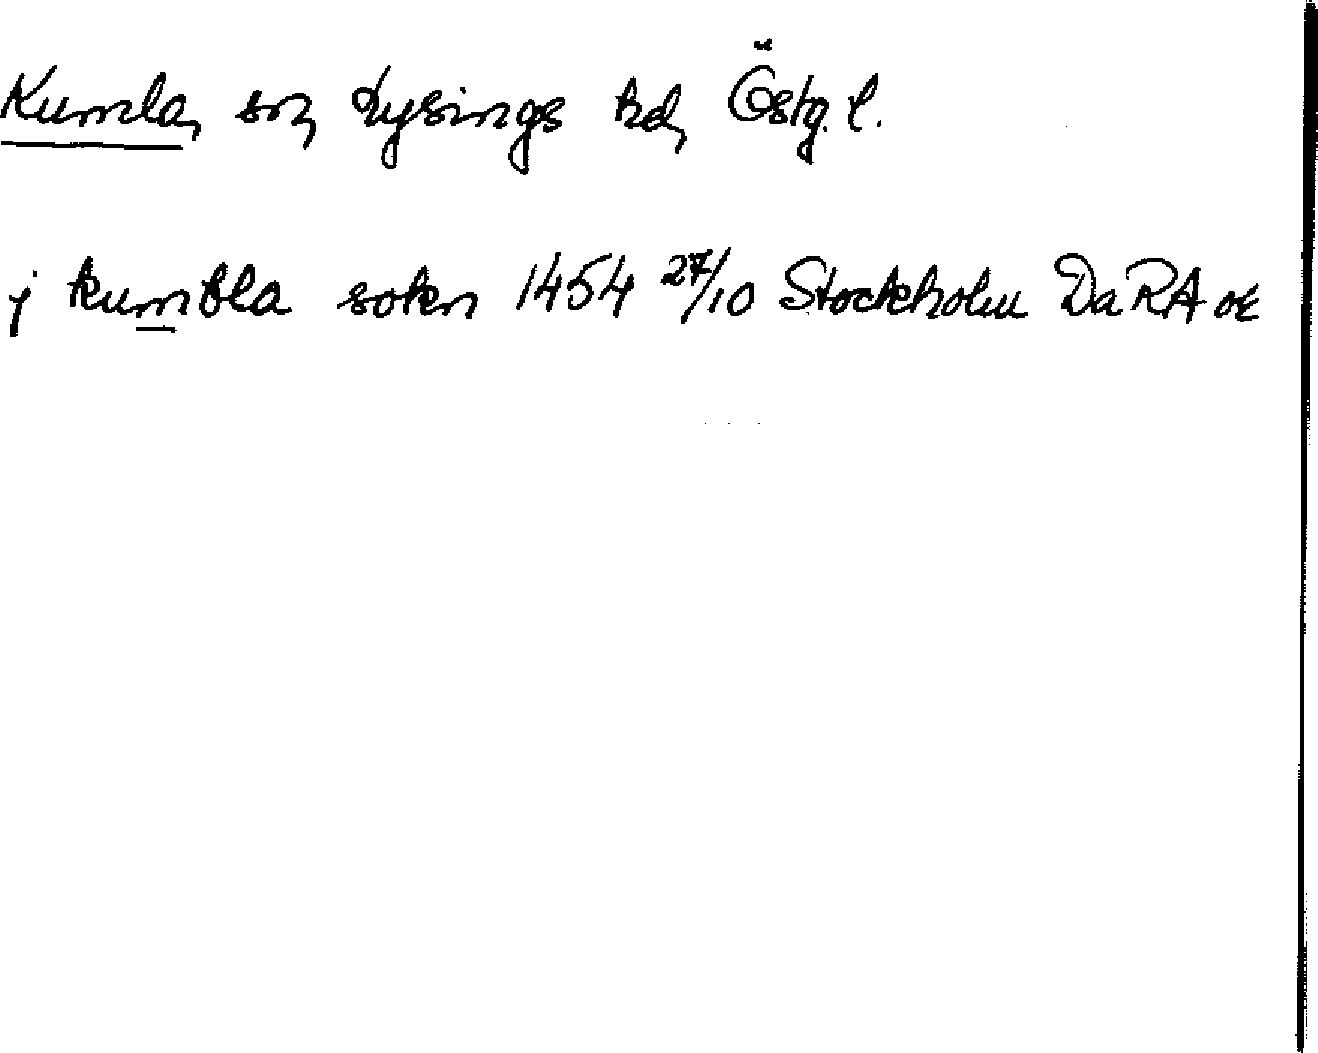 Kumla, sn, Lysings hd, Östg. l.
j kumbla sokn 1454 27/10 Stockholm Da RA or